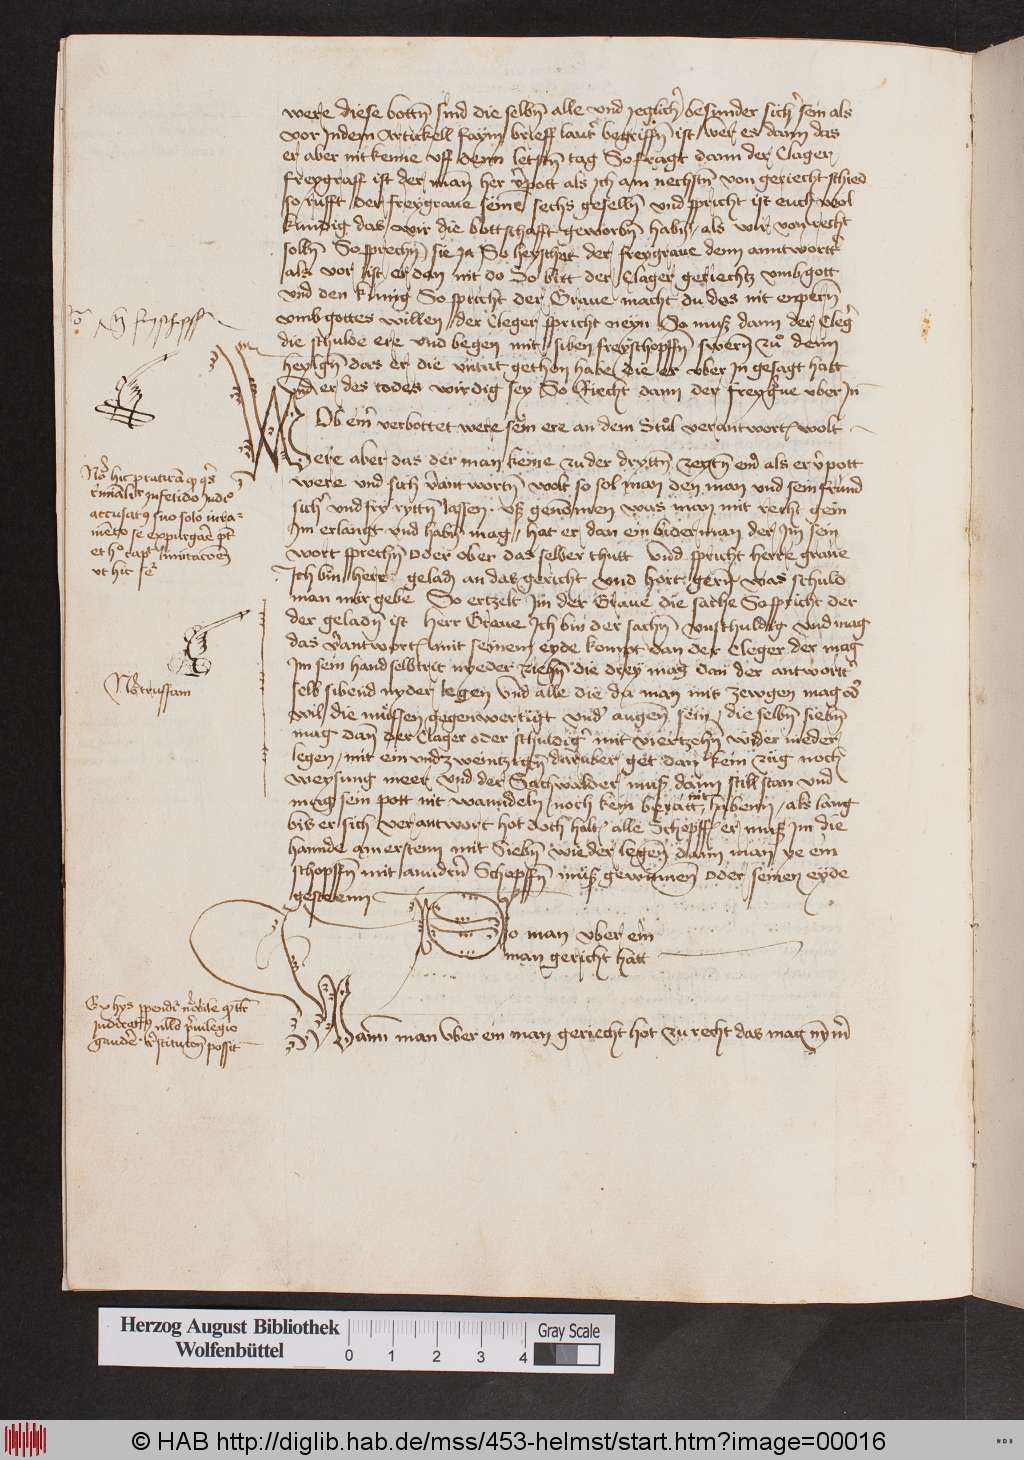 were diese bottñ sind die selbñ alle vnd yeglicħ besunder sich᷑ sein als
vor Jndem Artickell faym brieff laut᷑ begriffñ ist wer es dann das
er aber nit keme vff denn letstñ tag So fragt dann der Clager
freygraff ist der man her v̄pott als ich am nechstñ von geriecht schied
so rufft der freygraue seine sechs gesellñ vnd spricht ist euch wol
kundig das wir die bottschafft geworbñ habñ als wir von recht
solln So sprechñ sie Ja So heyschet der freygraue dem anntwortt᷑
als vor ist er dan nit do So bitt der Clager geriechtz vmb gott
vnd den kunig So spricht der Graue macht du des nit enpern
vmb gottes willen der Cleger spricht neyn So muß dann der Cleg᷑
die schulde ere vnd begen mit siben freyschopffñ swern zu denn
heylgñ das er die vntat gethon habe die er vber Jn gesagt hatt
vnd er des todes wirdig sey So Riecht dann der freyg᷑ue vber Jn
Ob ein᷑ verbottet were sein ere an dem Stul verantwort wolt
Were aber das der man keme zu der dryttñ zeytñ end als er v̄pott
were vnd sich v̄antworttñ wolt so sol man den man vnd sein frund
sich᷑ vnd fry rytñ lassen vß genomen was man mit recht gein
Jm erlangt vnd habñ mag hat er dan ein biderman der Jm sein
wort sprechñ oder ober das selber thutt vnd spricht herre graue
Jch bin herr geladñ an das gericht vnd hort gern was schuld
man mir gebe So ertzelt Jm der Graue die sache So spricht der
der geladñ ist herr Graue Jch bin der sachñ vnschuldig vnd mag
das v̄antwort mit seinem eyde kompt dan der Cleger der mag
Jm sein hand selbtrit nyeder ziehñ die drey mag dan der antwortt᷑
selb sibend nyder legen vnd alle die da man mit zewgen mag od᷑
wil die mussen gegenwertigt vnd᷑ augen sein die selbñ siebñ
mag dan der Clager oder schuldig᷑ mit viertzehñ wider nieder
legen mit ein vnd zweintzigñ daruber get dan kein zug noch
weysung meer vnd der Sachwalder muß dann still stan vnd
mag sein pott nit wanndeln noch kein beratt nit habenn als lang
bis er sich verantwort hot doch halt alle Schopff er muß Jm die
hannde am ersten mit Siebñ wieder legen dann man ye ein
schopffñ mit anndern Schopffñ muß gewinnen oder seinen eyde
gesteenn
So man vber ein
man gericht hatt
Wann man vber ein man geriecht hot zu recht das mag nym̄
Nō hic praticā
accusatus suo solo iura=
mēto se expurgare pt
vt hic
Nō truffam
gaudē restitutōn possit
Herzog August Bibliothek
Wolfenbüttel
0 1 2 3 4
Gray Scale
© HAB http://diglib.hab.de/mss/453-helmst/start.htm?image=00016